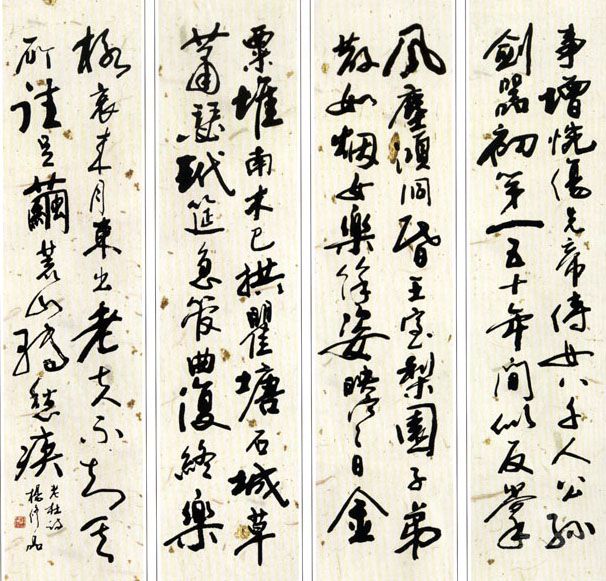 事增惋傷先帝侍女八千人公孫
劍器初第一五十年間似反掌
風塵澒洞昏王室梨園子弟
散如烟女樂餘姿映寒日金
粟堆南木已拱瞿塘石城草
蕭瑟玳筵急管曲復終樂
極哀來月東出老夫不知其
所往足繭荒山轉愁疾
老杜詩
楊